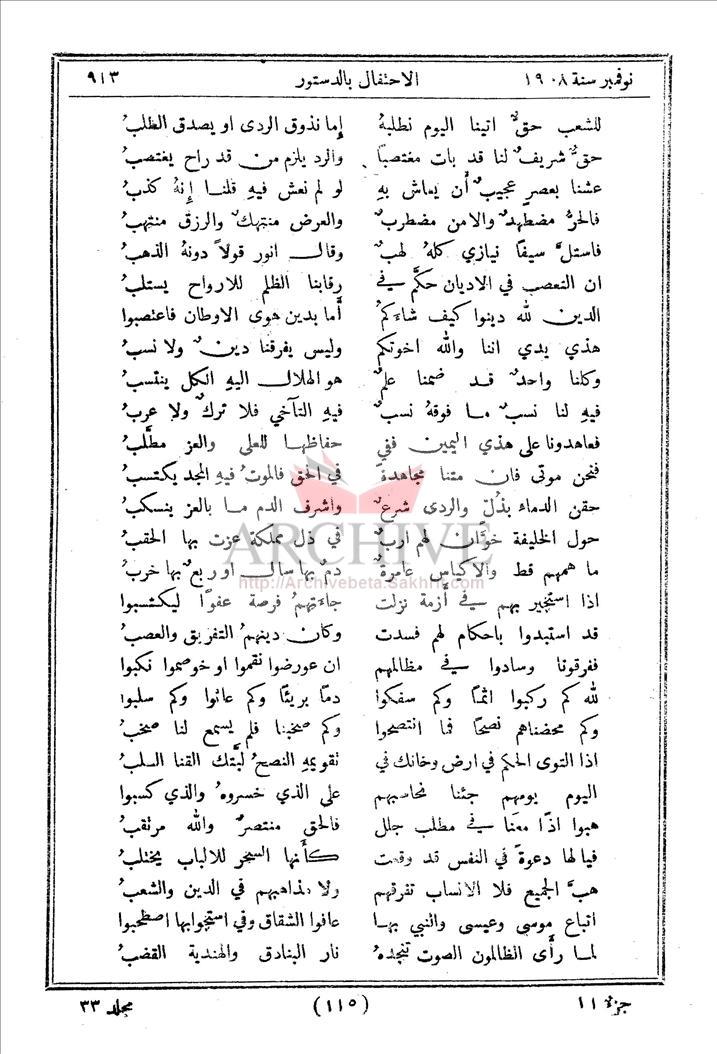 نوفمبر سنة ١٩٠٨ الاحتفال بالدستور ٩١٣
للشعب حقٌّ اتينا اليوم نطلبهُ إما نذوق الردى او يصدق الطلبُ
حقٌّ شريفٌ لنا قد بات مغتصباً والرد يلزم من قد راح يغتصبُ
عشنا بعصرٍ عجيبٍ أن يعاش بهِ لو لم نعش فيهِ قلنا إنهُ كذبُ
فالحرُّ مضطهدٌ والامن مضطربٌ والعرض منتهكٌ والرزق منتهبُ
فاستلَّ سيفاً نيازي كلهُ لهبٌ وقال انور قولاً دونهُ الذهبُ
ان التعصب في الاديان حكَّم في رقابنا الظلم للارواح يستلبُ
الدين لله دينوا كيف شاءكمُ أما بدين هوى الاوطان فاعتصبوا
هذي يدي اننا والله اخوتكم وليس يفرقنا دينٌ ولا نسبُ
وكلنا واحدٌ قد ضمنا علمٌ هو الهلال اليهِ الكل ينتسبُ
فيهِ لنا نسبٌ ما فوقهُ نسبٌ فيهِ التآخي فلا تركٌ ولا عربُ
فعاهدونا على هذي اليمين ففي حفاظها للعلى والعز مطَّلبُ
فنحن موتى فان متنا مجاهدةً في الحق فالموتُ فيهِ المجد يكتسبُ
حقن الدماء بذُلّ والردى شرعٌ واشرف الدم ما بالعز ينسكبُ
حول الخليفة خوَّان لهم اربٌ في ذل مملكة عزت بها الحقبُ
ما همهم قط والاكياس عامرةٌ دمٌ بها سال او ربعٌ بها خربُ
اذا استجير بهم في أزمة نزلت جاءتهمُ فرصة عفوًا ليكتسبوا
قد استبدوا باحكام لهم فسدت وكان دينهمُ التفريق والعصبُ
ففرقونا وسادوا في مظالمهم ان عورضوا نقموا او خوصموا نكبوا
لله كم ركبوا اثماً وكم سفكوا دماً بريئاً وكم عاثوا وكم سلبوا
وكم محضناهم نصحاً فما انتصحوا وكم صخبنا فلم يسمع لنا صخبُ
اذا التوى الحكم في ارض وخانك في تقويمهِ النصحُ لبَّتك القنا السلبُ
اليوم يومهم جئنا نحاسبهم على الذي خسروهُ والذي كسبوا
هبوا اذًا معنا في مطلب جلل فالحق منتصرٌ والله مرتقبُ
فيا لها دعوةً في النفس قد وقعت كأنها السحر للالباب يختلبُ
هبَّ الجميع فلا الانساب تفرقهم ولا مذاهبهم في الدين والشعبُ
اتباع موسى وعيسى والنبي بها عافوا الشقاق وفي استجوابها اصطحبوا
لما رأى الظالمون الصوت تنجدهُ نار البنادق والهندية القضبُ
ARCHIVE
http://Archivebeta.Sakhrit.com
جزء ١١ (١١٥) مجلد ٣٣